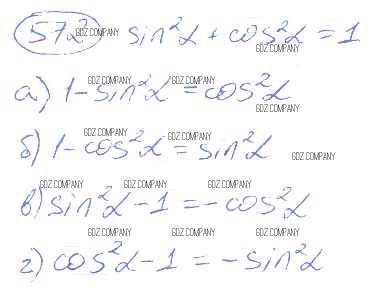 572 sin²α + cos²α = 1
а) 1 - sin²α = cos²α
б) 1 - cos²α = sin²α
в) sin²α - 1 = - cos²α
г) cos²α - 1 = - sin²α
GDZ.COMPANY
GDZ.COMPANY
GDZ.COMPANY GDZ.COMPANY
GDZ.COMPANY
GDZ.COMPANY GDZ.COMPANY
GDZ.COMPANY
GDZ.COMPANY GDZ.COMPANY GDZ.COMPANY
GDZ.COMPANY GDZ.COMPANY GDZ.COMPANY